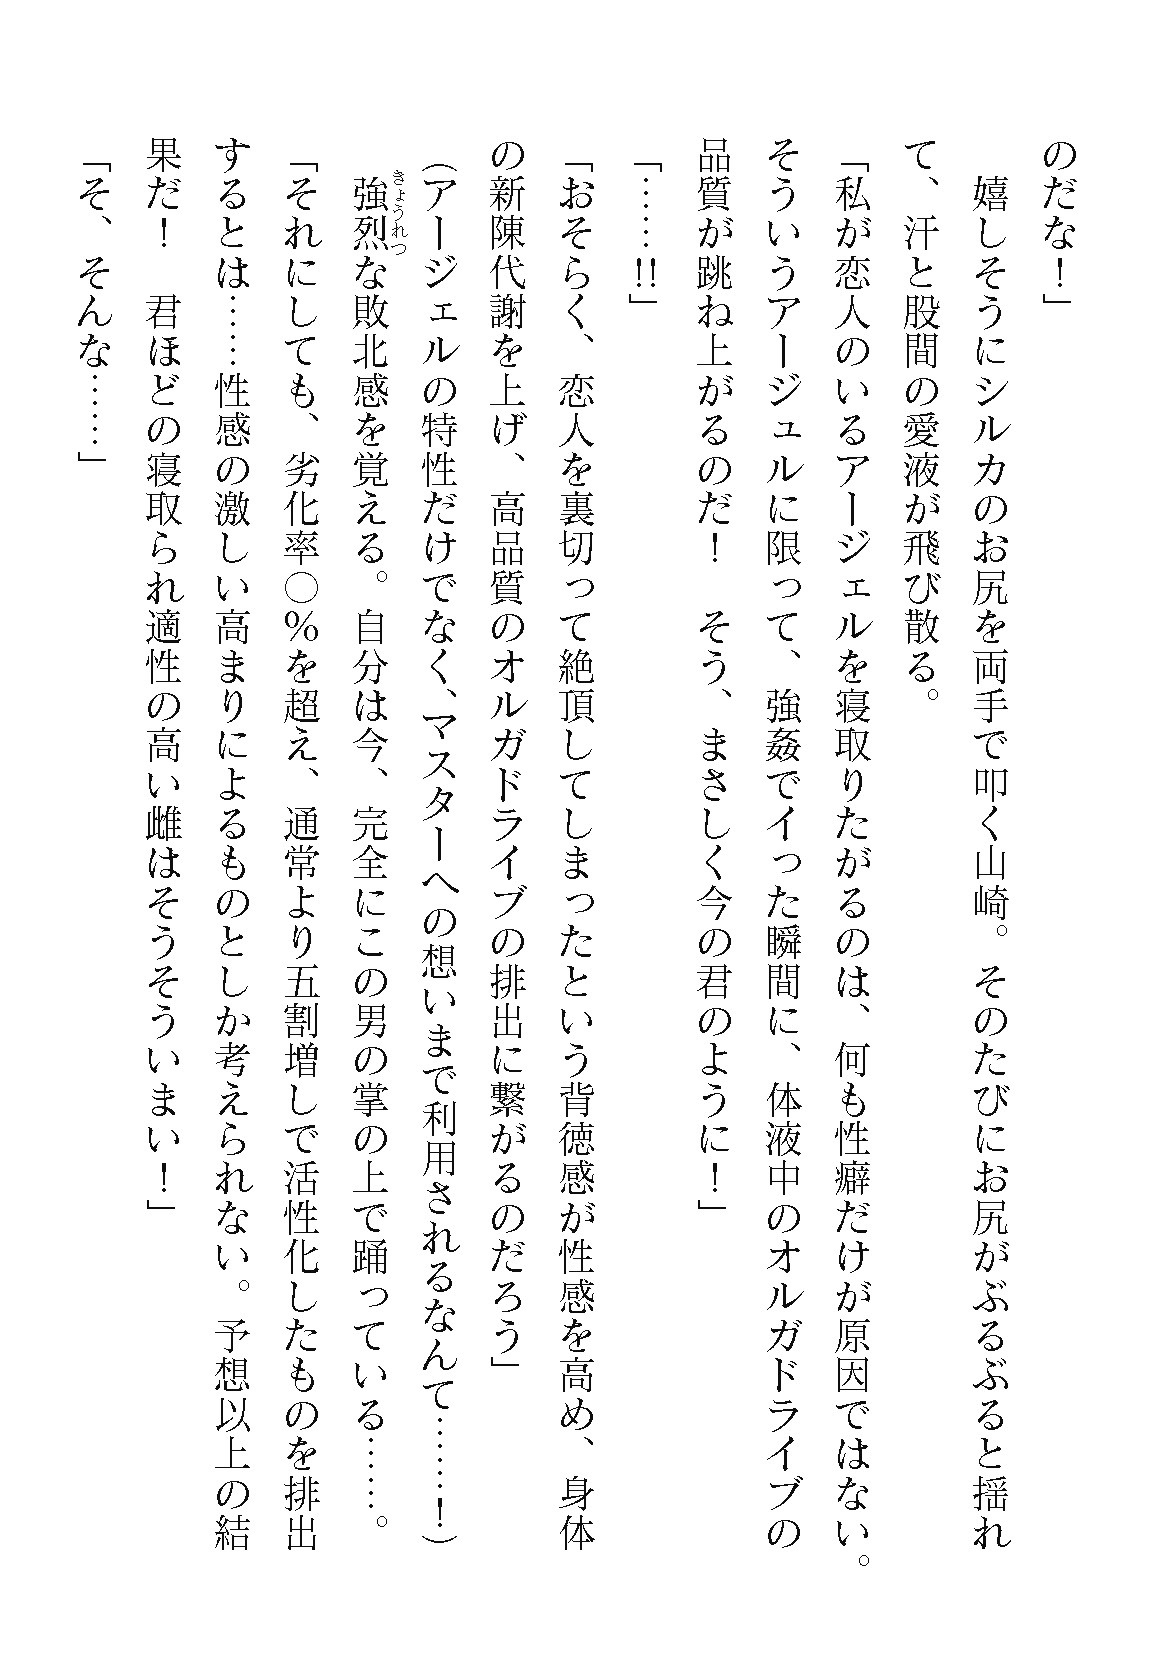 のだな！」
　嬉しそうにシルカのお尻を両手で叩く山崎。そのたびにお尻がぶるぶると揺れ
て、汗と股間の愛液が飛び散る。
「私が恋人のいるアージェルを寝取りたがるのは、何も性癖だけが原因ではない。
そういうアージュルに限って、強姦でイった瞬間に、体液中のオルガドライブの
品質が跳ね上がるのだ！　そう、まさしく今の君のように！」
「……!!」
「おそらく、恋人を裏切って絶頂してしまったという背徳感が性感を高め、身体
の新陳代謝を上げ、高品質のオルガドライブの排出に繋がるのだろう」
（アージェルの特性だけでなく、マスターへの想いまで利用されるなんて……！）
　強烈な敗北感を覚える。自分は今、完全にこの男の掌の上で踊っている……。
きょうれつ
「それにしても、劣化率〇％を超え、通常より五割増しで活性化したものを排出
するとは……性感の激しい高まりによるものとしか考えられない。予想以上の結
果だ！　君ほどの寝取られ適性の高い雌はそうそういまい！」
「そ、そんな……」